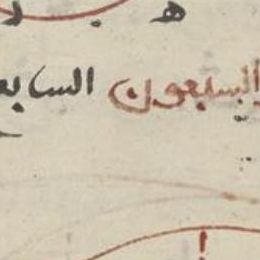 ه
والسبعون السابع